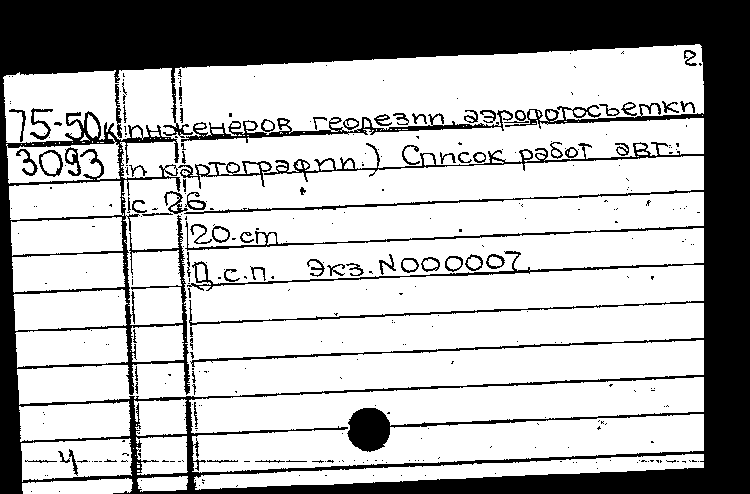 2.
75-50к инженеров геодезии, аэрофотосъемки
3093 и картографии.) Список работ авт.:
с. 26.
20.cm
Д.с.п. Экз.N000007.
ч